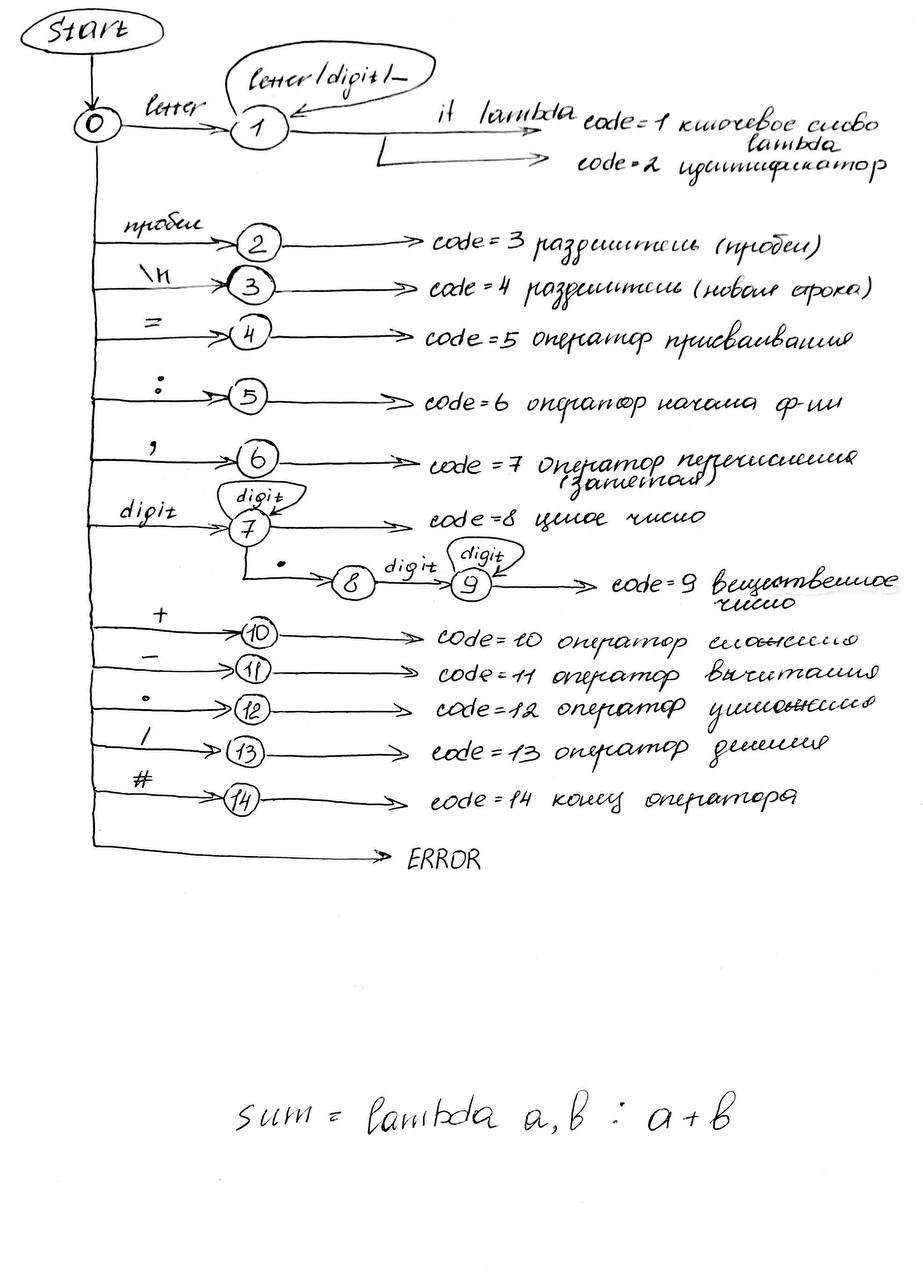 Start
letter/digit/_
0 letter 1 if lambda code=1 ключевое слово
lambda
code=2 идентификатор
пробел 2 code=3 разделитель (пробел)
\n 3 code=4 разделитель (новая строка)
= 4 code=5 оператор присваивания
: 5 code=6 оператор начала ф-ии
, 6 code=7 оператор перечисления
(запятая)
digit
digit 7 code=8 целое число
. 8 digit 9 digit code=9 вещественное
число
+ 10 code=10 оператор сложения
- 11 code=11 оператор вычитания
• 12 code=12 оператор умножения
/ 13 code=13 оператор деления
# 14 code=14 конец оператора
ERROR
sum = lambda a,b : a+b